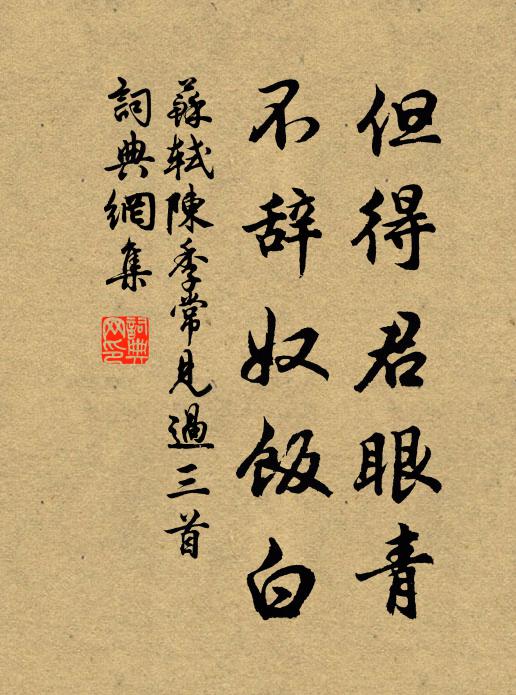 但得君眼青
不辞奴飯白
蘇軾陳季常見過三首
詞典網集
詞典網印